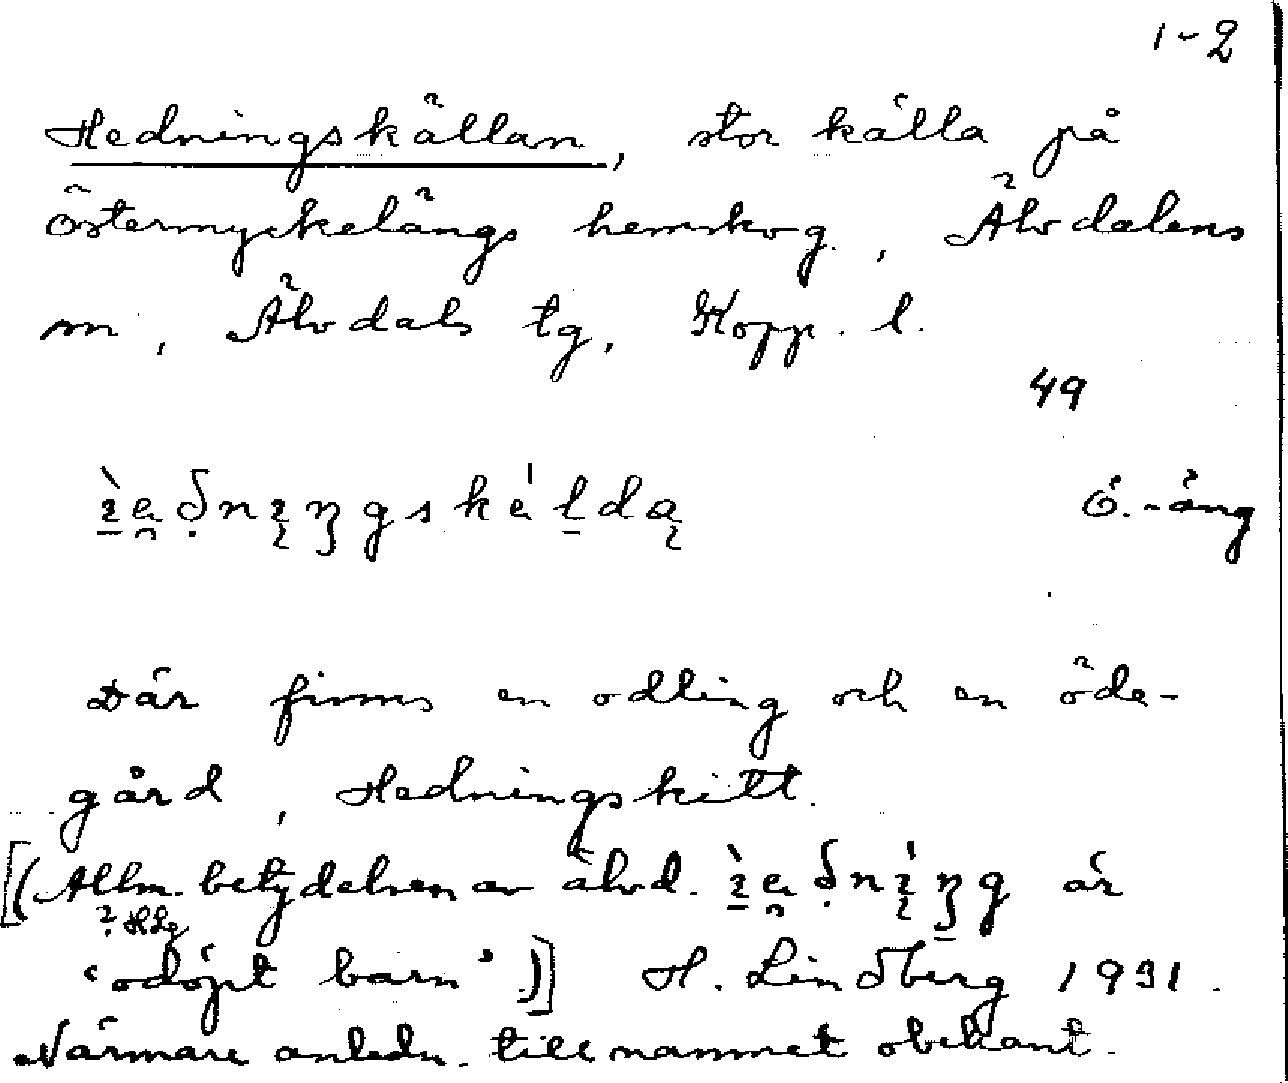 1-2
Hedningskällan, stor källa på
Östermyckelängs hemskog, Älvdalens
sn, Älvdals tg, Kopp. l.
49
Ö.-äng
Där finns en odling och en öde-
gård, Hedningskitt.
[(Allm. betydelsen av älvd. är
? HLg
'odöpt barn')] H. Lindberg 1931.
Närmare anledn. till namnet obekant.